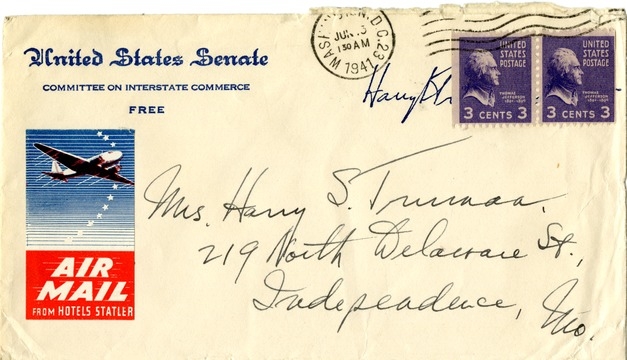 United States Senate
COMMITTEE ON INTERSTATE COMMERCE
FREE
WASHINGTON, D.C. 23
JUN
1 30 AM
1941
Harry
UNITED STATES POSTAGE
THOMAS JEFFERSON
3 CENTS 3
UNITED STATES POSTAGE
THOMAS JEFFERSON
3 CENTS 3
AIR
MAIL
FROM HOTELS STATLER
Mrs. Harry S. Truman.
219 North Delaware St.,
Independence, Mo.